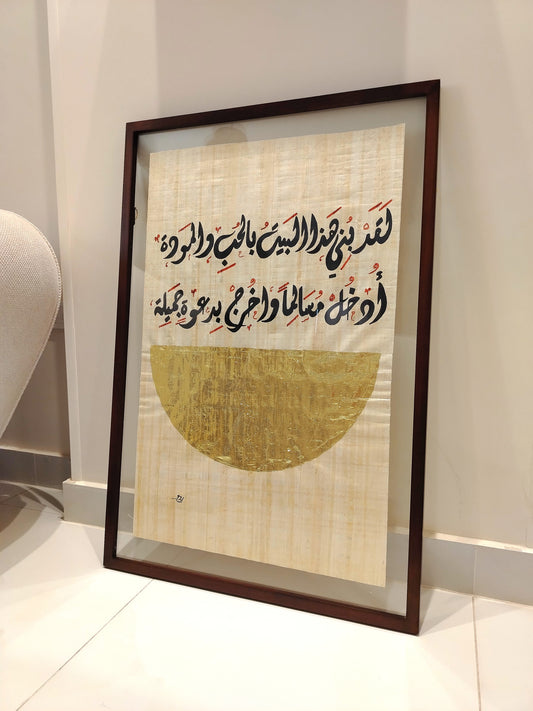 لَقَدْ بُنِيَ هَذا البَيتُ بالحُبِ والمَودة
أُدخُلْ مُسَالِماً وَاخرُجْ بِدعوَةٍ جَمِيلة